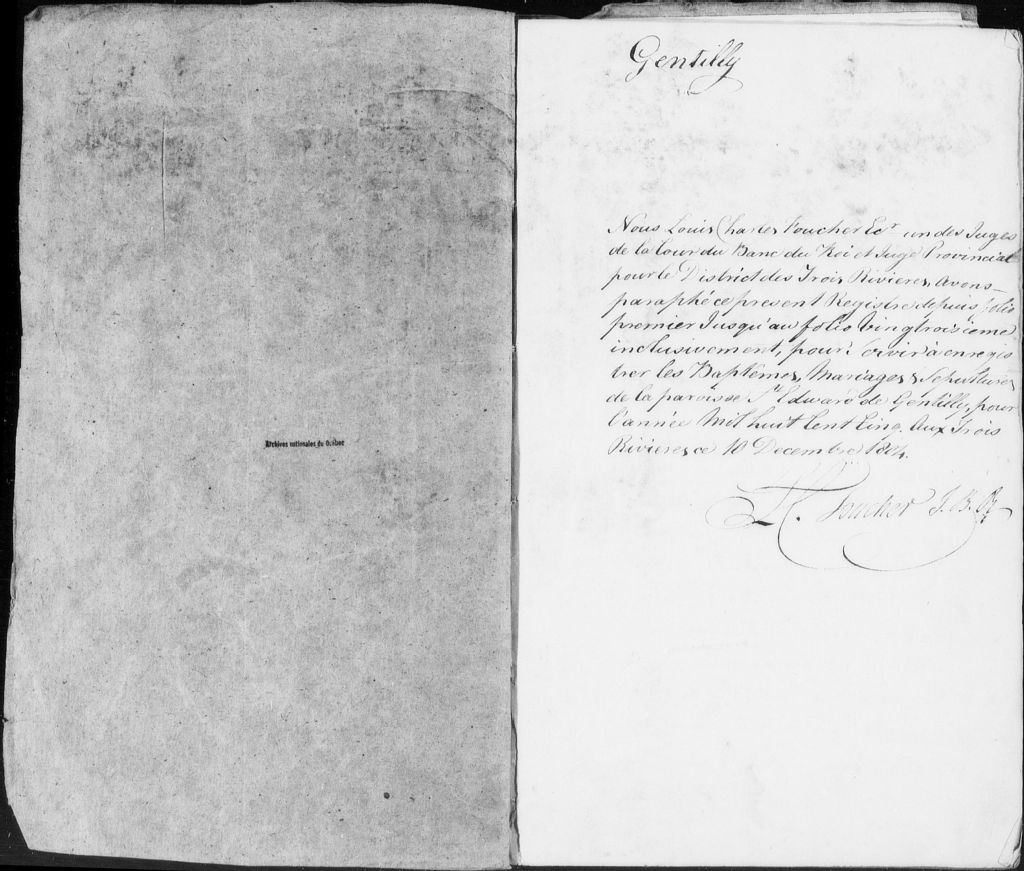 Archives nationales du Québec
Gentilly
Nous Louis Charles Foucher Ecr un des Juges
de la Cour du Banc du Roi et Juge Provincial
pour le District des Trois Rivieres, Avons
paraphé ce present Registre depuis folio
premier Jusqu'au folio Vingtroisieme
inclusivement, pour Servir à enregis
trer les Baptêmes, Mariages & Sepultures
de la paroisse St Edward de Gentilly, pour
l'année Mil huit Cent Cinq. Aux Trois
Rivieres ce 10 Decembre 1804.
L. C. Foucher J. B. R.